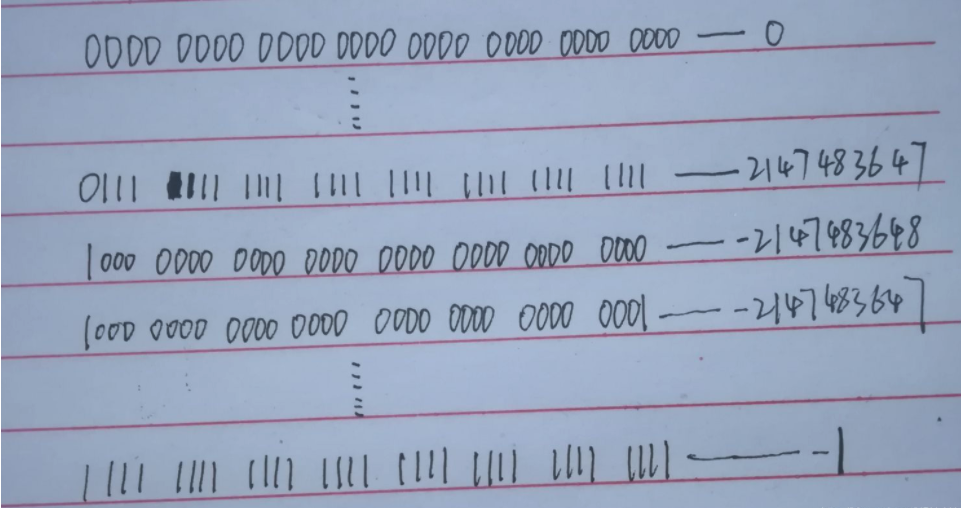 0000 0000 0000 0000 0000 0000 0000 0000 — 0
0111 1111 1111 1111 1111 1111 1111 1111 — 2147483647
1000 0000 0000 0000 0000 0000 0000 0000 — -2147483648
1000 0000 0000 0000 0000 0000 0000 0001 — -2147483647
1111 1111 1111 1111 1111 1111 1111 1111 — -1